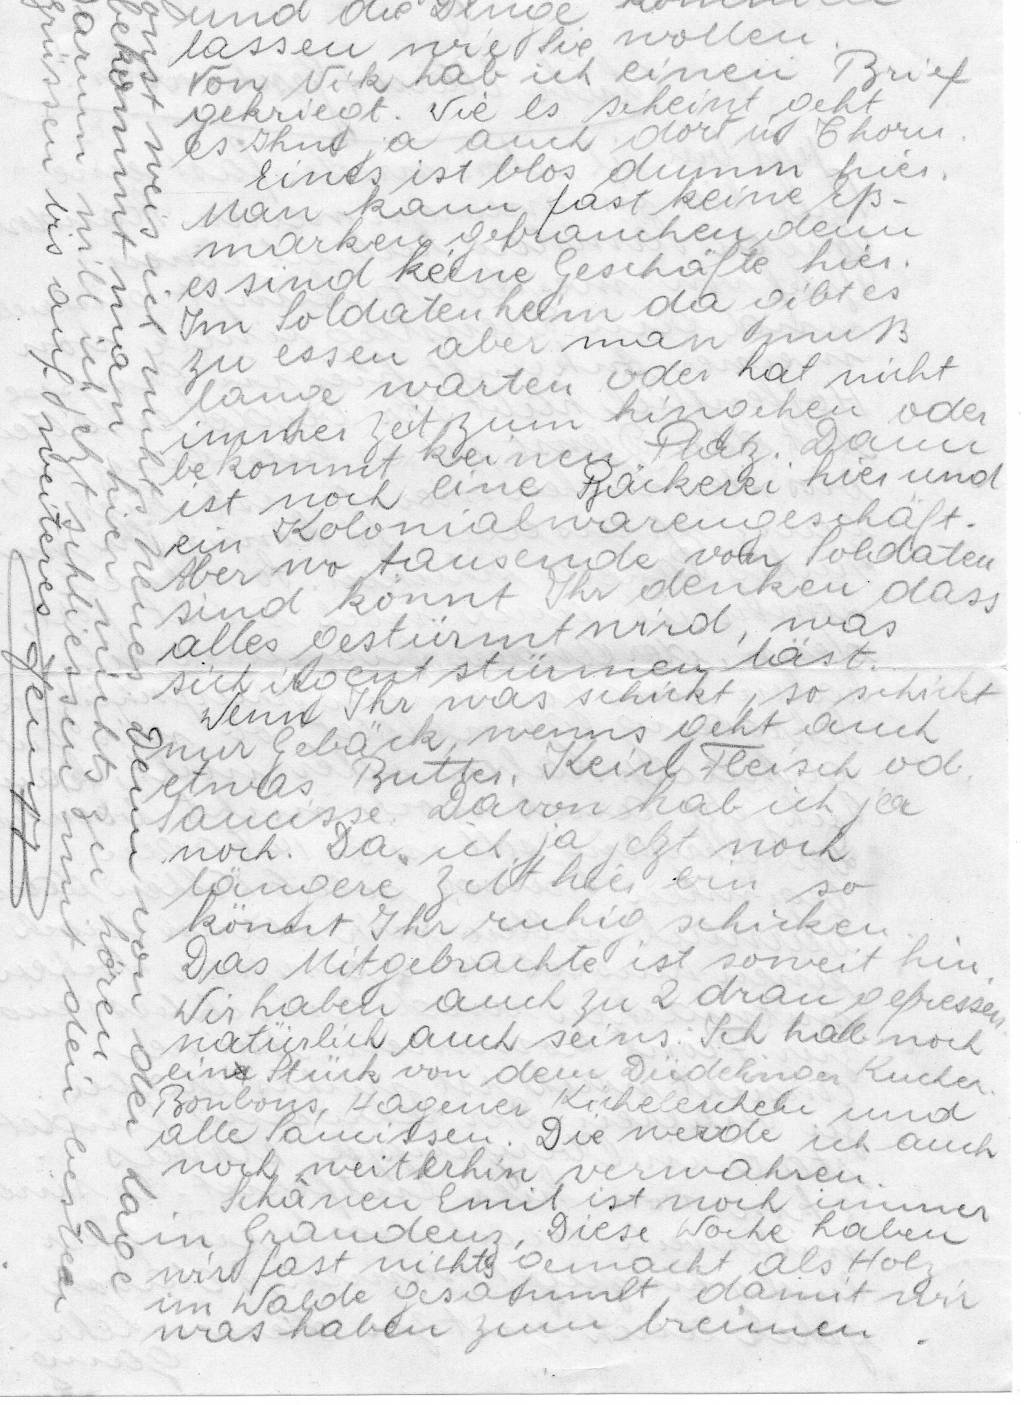 und die Dinge kommen
lassen wie Sie wollen.
Von Vik hab ich einen Brief
gekriegt. Wie es scheint geht
es Ihm ja auch dort in Thorn.
Eines ist blos dumm hier.
Man kann fast keine Eß-
marken gebrauchen denn
es sind keine Geschäfte hier.
Im Soldatenheim da gibt es
zu essen aber man muß
lange warten oder hat nicht
immer Zeit zum hingehen oder
bekommt keinen Platz. Dann
ist noch eine Bäckerei hier und
ein Kolonialwarengeschäft.
Aber wo tausende von Soldaten
sind könnt Ihr denken dass
alles gestürmt wird, was
sich irgent stürmen läst.
Wenn Ihr was schickt, so schickt
nur Gebäck, wenns geht auch
etwas Butter. Kein Fleisch od.
Saucisse. Davon hab ich ja
noch. Da ich ja jetzt noch
längere Zeit hier bin so
könnt Ihr ruhig schicken.
Das Mitgebrachte ist soweit hin.
Wir haben auch zu 2 dran gefressen
natürlich auch seins. Ich hab noch
eine Stück von dem Düdelinger Kuchen.
Bonbons, Hagener Kichelercher und
alle Saucissen. Die werde ich auch
noch weiterhin verwahren.
Schänen Emil ist noch immer
in Graudenz. Diese Woche haben
wir fast nichts gemacht als Holz
im Walde gesammelt, damit wir
was haben zum brennen.
Sonst weis ich nichts Neues. Denn von der Lage
bekommt man hier nichts zu hören
Darum will ich jetzt schliessen mit den besten
Grüssen bis auf weiteres